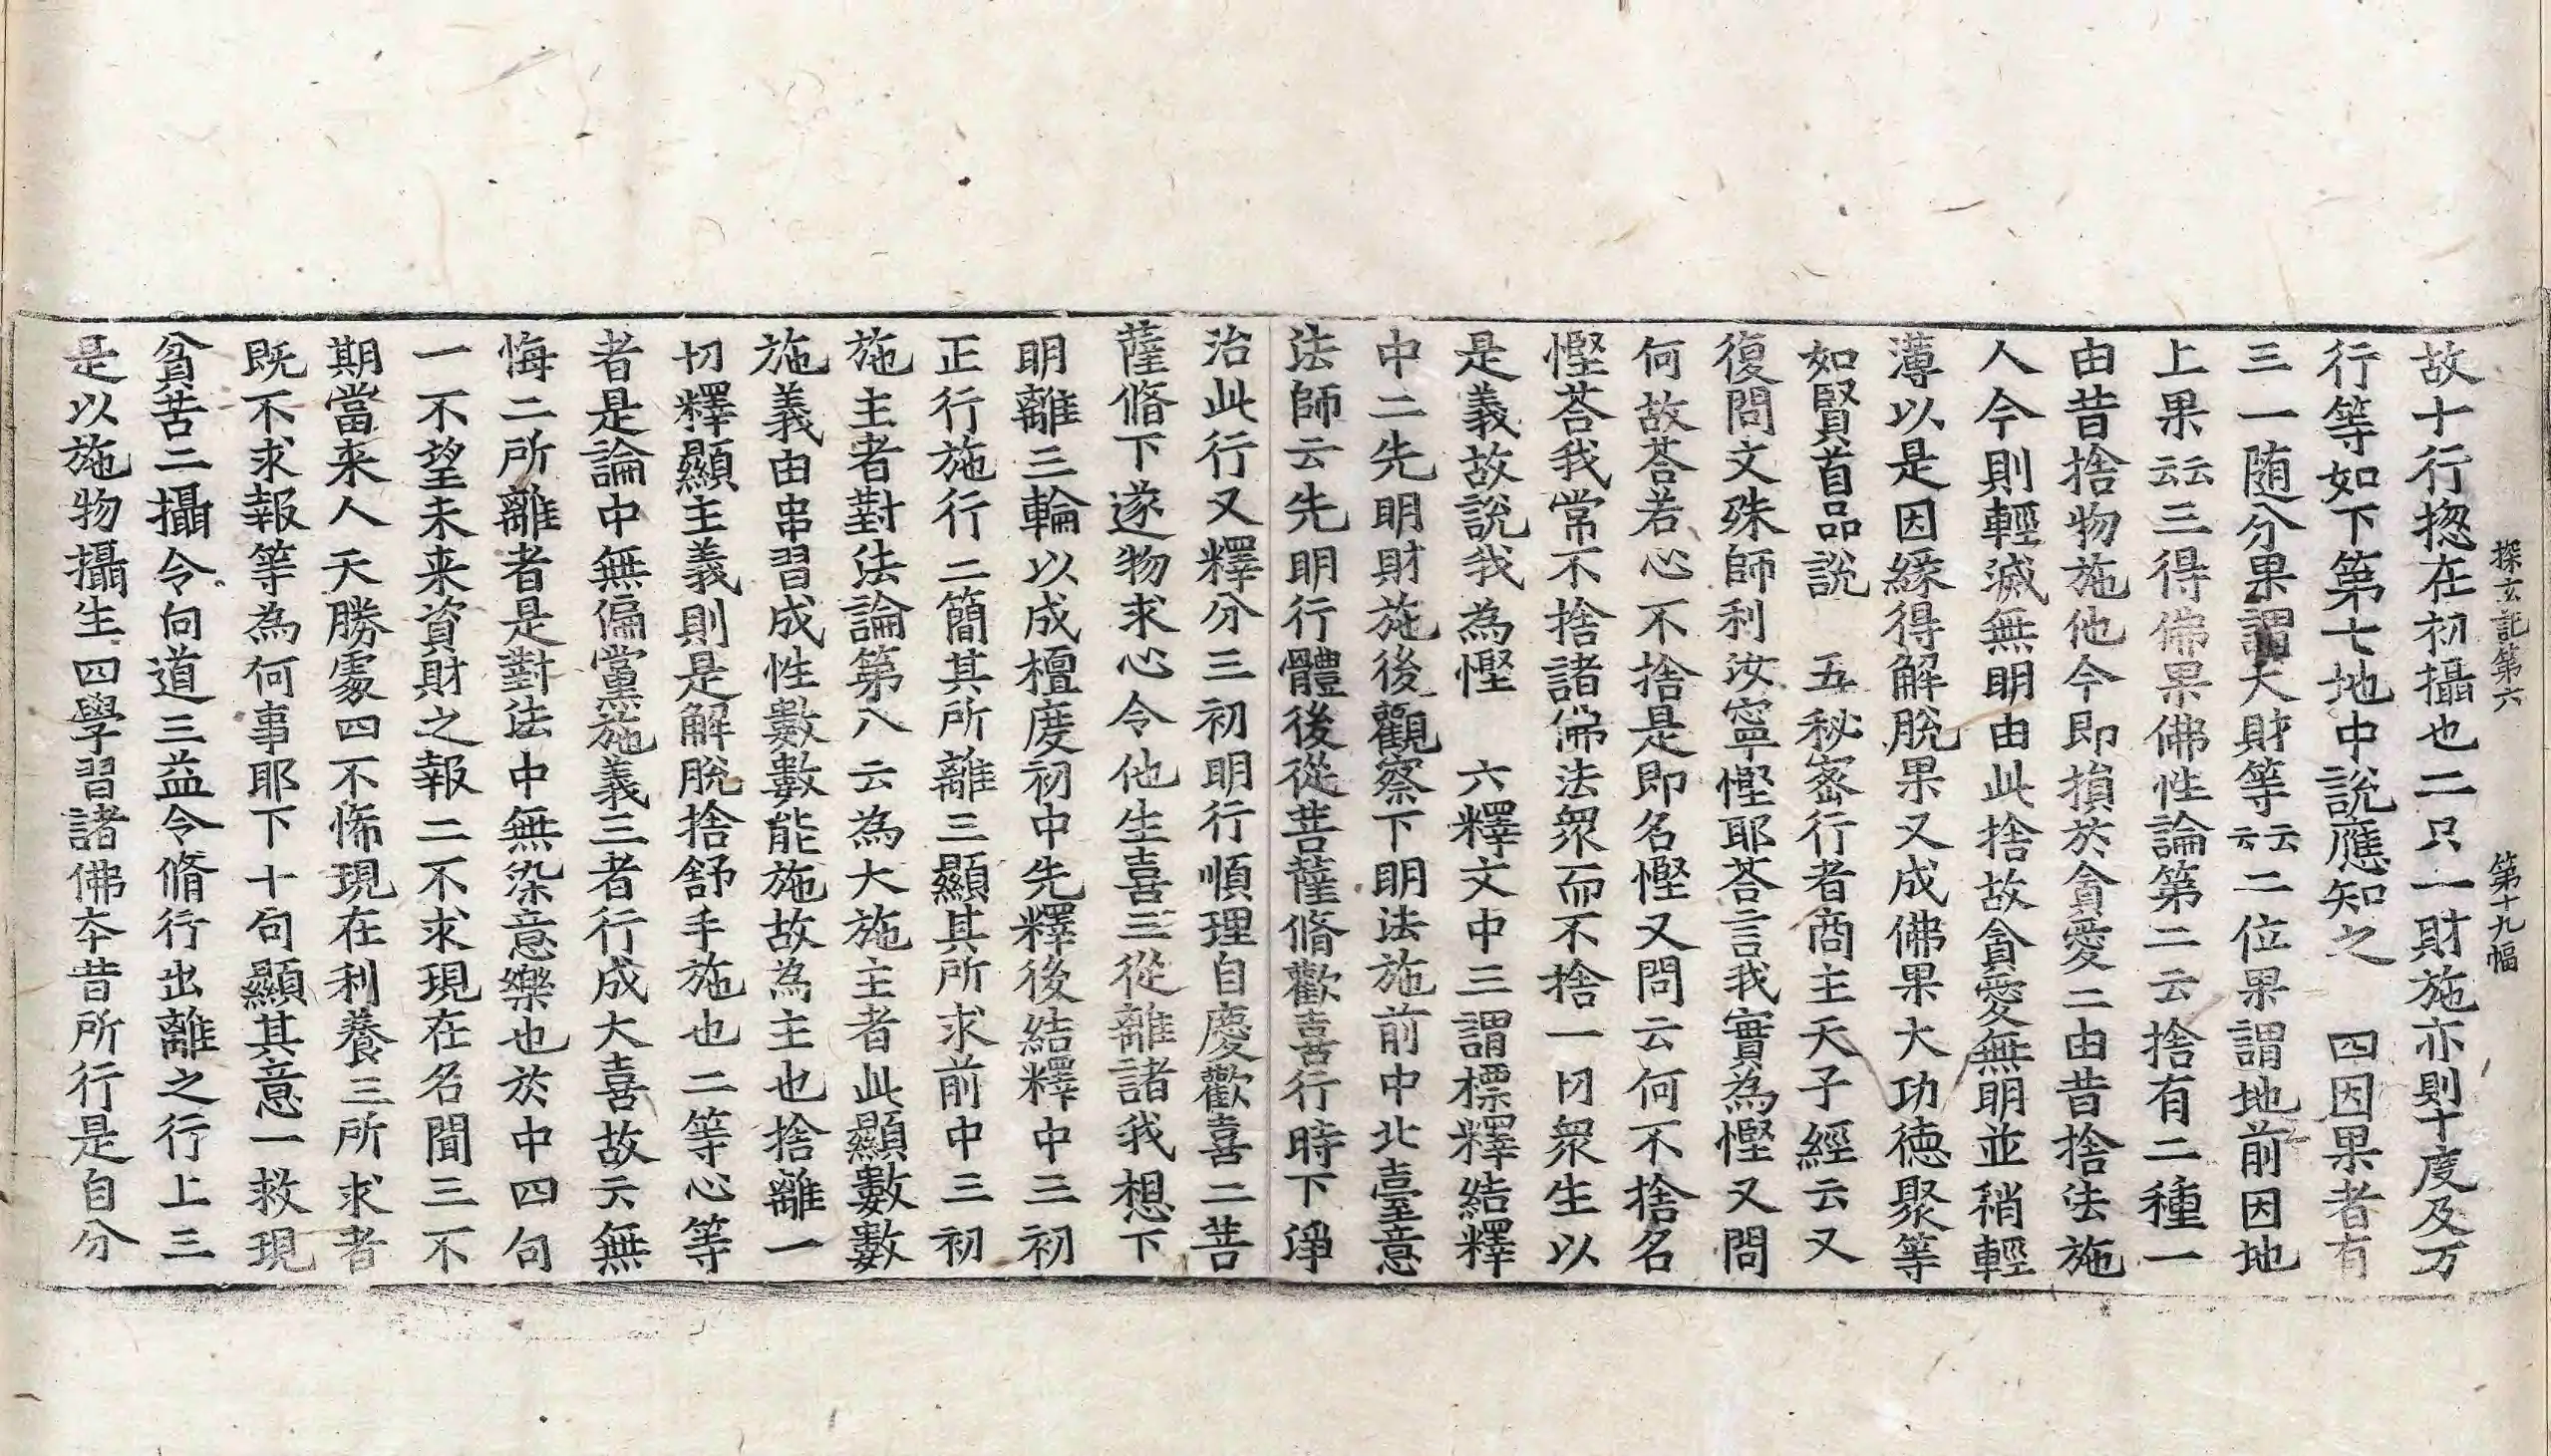 探玄記第六　第十九幅
故十行揔在初攝也二只一財施亦則十度及万
行等如下第七地中說應知之　四因果者有
三一随分果謂大財等云云二位果謂地前因地
上果云云三得佛果佛性論第二云捨有二種一
由昔捨物施他今即損於貪愛二由昔捨法施
人今則輕滅無明由此捨故貪愛無明並稍輕
薄以是因緣得解脫果又成佛果大功德聚等
如賢首品說　五秘密行者商主天子經云又
復問文殊師利汝寧慳耶荅言我實為慳又問
何故荅若心不捨是即名慳又問云何不捨名
慳荅我常不捨諸佛法衆而不捨一切衆生以
是義故說我為慳　六釋文中三謂標釋結釋
中二先明財施後觀察下明法施前中北臺意
法師云先明行體後從菩薩脩歡喜行時下淨
治此行又釋分三初明行順理自慶歡喜二菩
薩脩下遂物求心令他生喜三從離諸我想下
明離三輪以成檀度初中先釋後結釋中三初
正行施行二簡其所離三顯其所求前中三初
施主者對法論第八云為大施主者此顯數數
施義由串習成性數數能施故為主也捨離一
切釋顯主義則是解脫捨舒手施也二等心等
者是論中無偏黨施義三者行成大喜故云無
悔二所離者是對法中無染意樂也於中四句
一不望未来資財之報二不求現在名聞三不
期當来人天勝處四不悕現在利養三所求者
既不求報等為何事耶下十句顯其意一救現
貧苦二攝令向道三益令脩行出離之行上三
是以施物攝生四學習諸佛夲昔所行是自分